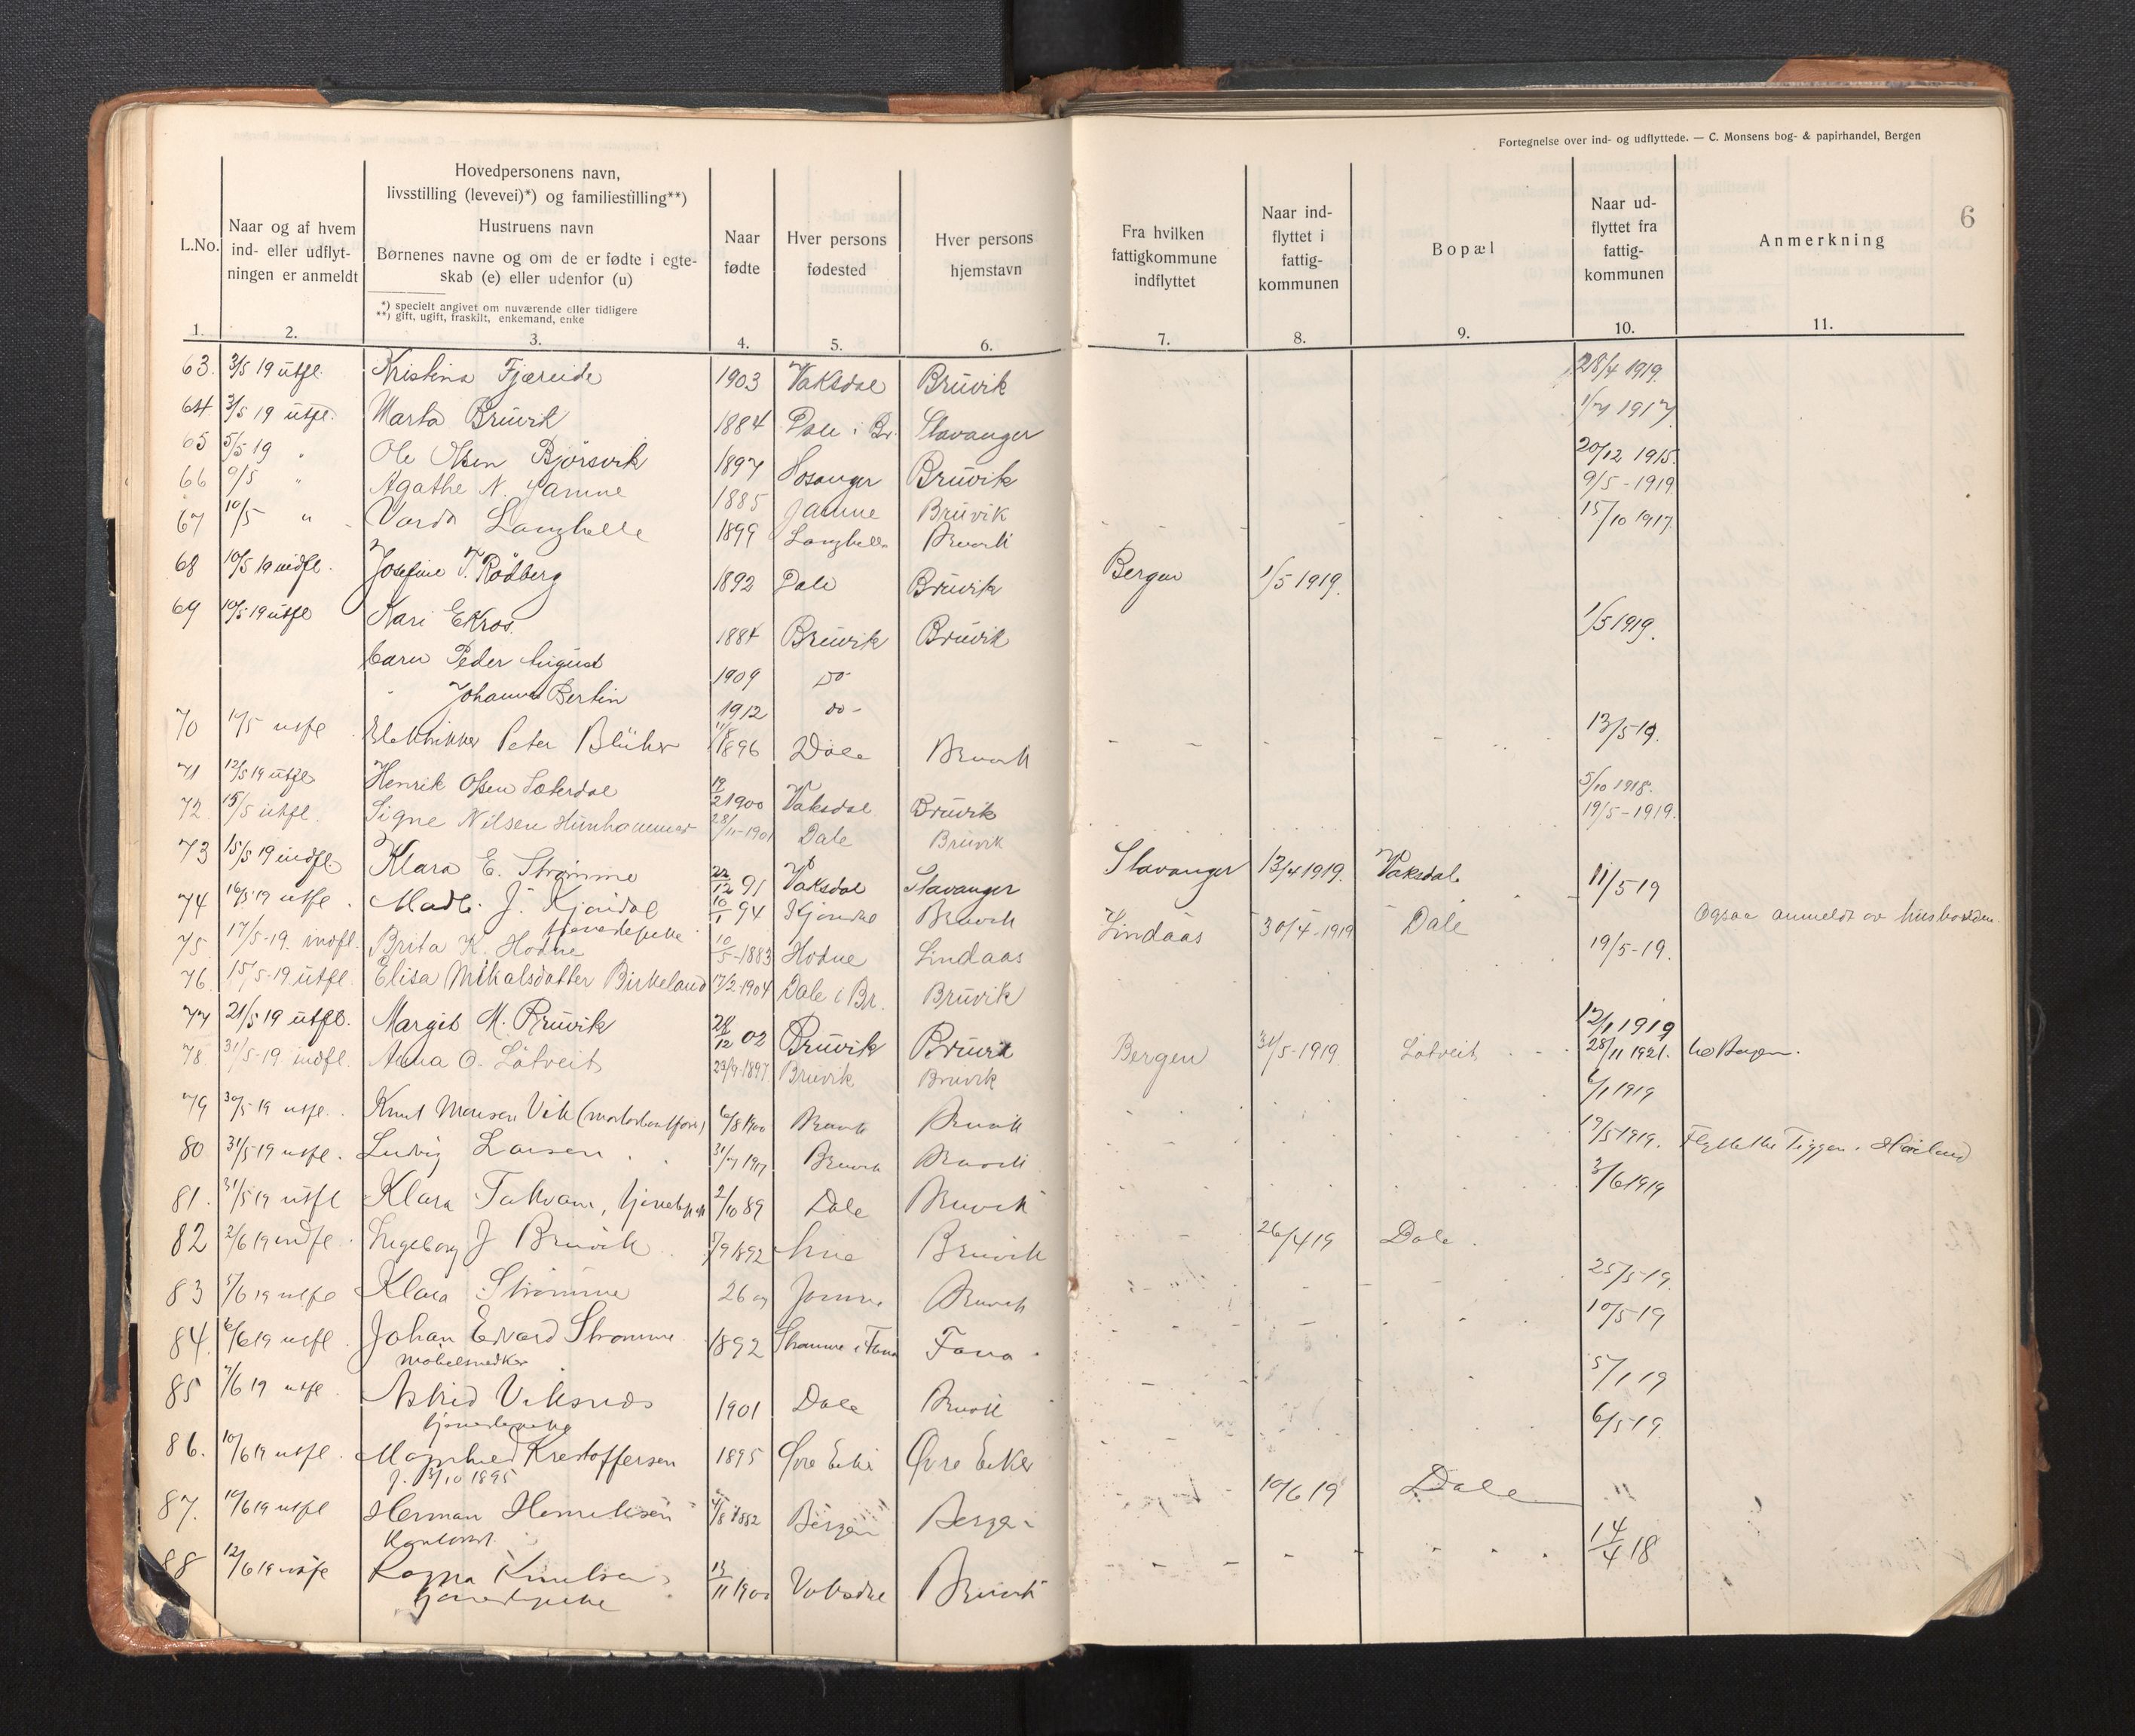 Fortegnelse over ind- og udflyttede. — C. Monsens bog- & papirhandel, Bergen
6
L.No.
Naar og af hvem ind- eller udflyt-ningen er anmeldt
Hovedpersonens navn,
livsstilling (levevei)*) og familiestilling**)
Hustruens navn
Børnenes navne og om de er fødte i egte-
skab (e) eller udenfor (u)
*) specielt angivet om nuværende eller tidligere
**) gift, ugift, fraskilt, enkemand, enke
Naar fødte
Hver persons fødested
Hver persons hjemstavn
Fra hvilken fattigkommune indflyttet
Naar ind-flyttet i fattig-kommunen
Bopæl
Naar ud-flyttet fra fattig-kommunen
Anmerkning
1. 2. 3. 4. 5. 6. 7. 8. 9. 10. 11.
63. 3/5 19 utfl. Kristina Fjæreide 1903 Vaksdal Bruvik 28/4 1919.
64 3/5 19 utfl. Marta Bruvik 1884 Dale i Br. Stavanger 1/7 1917
65 5/5 19 " Ole Olsen Bjørsvik 1897 Hosanger Bruvik 20/12 1915.
66 9/5 " Agathe N. Jamne 1885 Jamne Bruvik 9/5 - 1919.
67 10/5 " Langhelle 1899 Langhelle Bruvik 15/10 1917.
68 10/5 19 indfl. Josefine T. Rødberg 1892 Dale Bruvik Bergen 1/5 1919.
69 10/5 19 utfl Kari Ekros. 1884 Bruvik Bruvik 1/5 1919.
barn Peder August 1909 do
" Johannes Bertin 1912 do -
70 utfl Elektrikker Peter Blüher 1896 Dale Bruvik 13/5-19.
71 12/5 19 utfl. Henrik Olsen Sæterdal 19/2 1900 Vaksdal Bruvik 5/10 1918.
72. 15/5 utfl. Signe Nilsen Hunhammer 28/11-1901 Dale Bruvik 19/5-1919.
73 15/5 19 indfl. Klara E. Strømme 22/12 91 Vaksdal Stavanger Stavanger 13/4 1919. Vaksdal
74 16/5 19 utfl. J. 10/1 94 Bruvik 11/5 19
tjenestepike
75. 17/5-19. indfl. Brita K. Hodne 10/5-1883 Hodne Lindaas Lindaas 30/4-1919 Dale Ogsaa anmeldt av husbonden.
76. 15/5-19 utfl. Elisa Mikalsdatter Birkeland 17/2-1904 Dale i Br. Bruvik 19/5-19.
77 21/5 19 utfl. Margit M. Bruvik 12 02 Bruvik Bruvik 12/1 1919
78. 31/5-19. indfl. Anna O. Løtveit 23/9-1897 Bruvik Bruvik Bergen 31/5-1919. Løtveit 28/11 1921.
79 30/5 19 utfl. Knut Monsen Vik 6/8 1900 Bruvik Bruvik 6/1 1919
80 31/5 19 utfl. Ludvig Larsen. 31/7 Bruvik Bruvik 17/5 1919.
81. 31/5 19 utfl Klara Takvam, tjenestepike 2/10 89 Dale Bruvik 3/6 1919
82 2/6 19 indfl. Ingeborg J Bruvik 7/9 1892 Bruvik 26/4 19 Dale.
83 5/6 19 utfl Klara Strømme 26 Jamne Bruvik 25/5-19.
84. 6/6 19 utfl. Johan Edvard Strømme 1892 Strømme i Fana Fana. 10/5-19
møbelsnedker
85 7/6 19 utfl. Astrid Veksnes 1901 Dale Bruvik 5/1 19
tjenestepike
86. 10/6 19 utfl. Kristoffersen 1895 Øvre Eiker Øvre Eiker 6/5-19.
f. 1895
87. 10/6 19 utfl Herman Henriksen 1882 Bergen Bergen 10/6 19 Dale
Kontorist.
88 12/6 19 utfl Ragna Knutsen 13/11 1900 Vaksdal Bruvik 14/4 18
tjenestepike